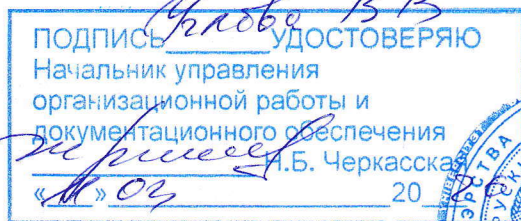 В В
ПОДПИСЬ УДОСТОВЕРЯЮ
Начальник управления
организационной работы и
документационного обеспечения
Н.Б. Черкасская
« » 02 20